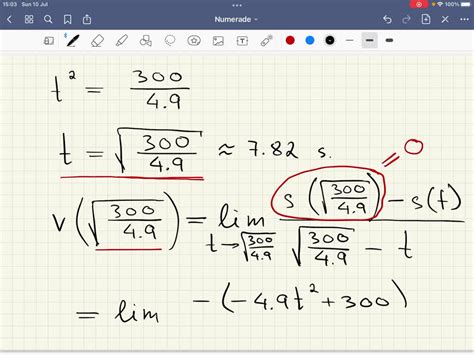 15:03 Sun 10 Jul
100%
Numerade
t² = 300/4.9
t = √(300/4.9) ≈ 7.82 s.
= 0
v(√(300/4.9)) = lim t→√(300/4.9) (s(√(300/4.9)) - s(t))/(√(300/4.9) - t)
= lim -(-4.9t² + 300)